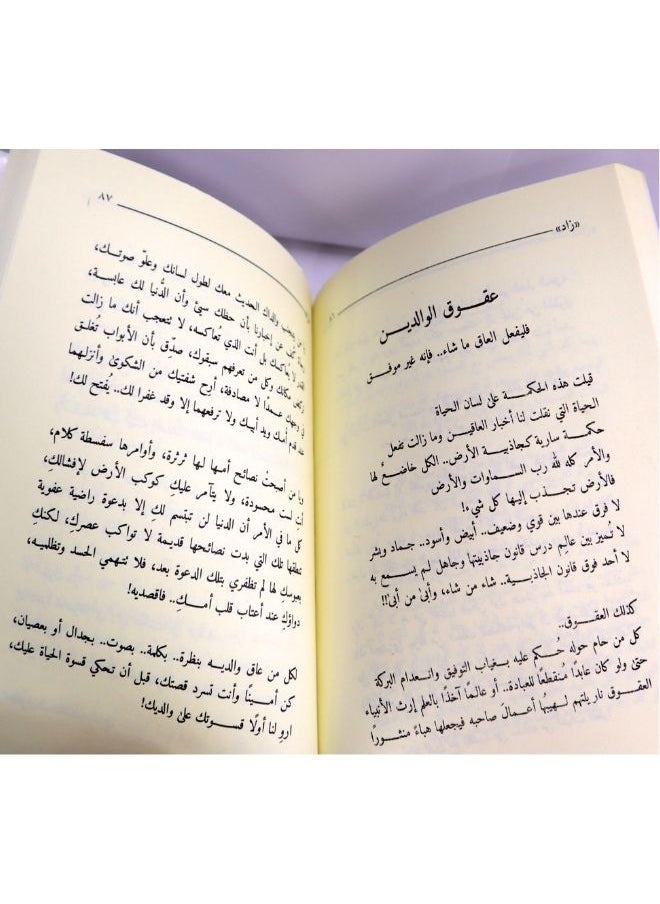 «زاد»
عقوق الوالدين
فليفعل العاق ما شاء.. فإنه غير موفق
قيلت هذه الحكمة على لسان الحياة
الحياة التي نقلت لنا أخبار العاقين وما زالت تفعل
حكمة سارية كجاذبية الأرض.. الكل خاضع لها
والأمر كله لله رب السماوات والأرض
فالأرض تجذب إليها كل شيء!
لا فرق عندها بين قوي وضعيف.. أبيض وأسود.. جماد وبشر
لا تُميز بين عالِم درس قانون جاذبيتها وجاهل لم يسمع به
لا أحد فوق قانون الجاذبية.. شاء من شاء، وأبىٰ من أبىٰ!!
كذلك العقوق..
كل من حام حوله حُكم عليه بغياب التوفيق وانعدام البركة
حتى ولو كان عابدًا مُنقطعًا للعبادة.. أو عالمًا آخذًا بالعلم إرث الأنبياء
العقوق نار يلتهم لهيبها أعمالَ صاحبه فيجعلها هباءً منثورًا
٨٧
والداك الحديث معك لطول لسانك وعلوّ صوتك،
كُف عن إخبارنا بأن حظك سيئ وأن الدُّنيا لك عابسة،
بل أنت الذي تُعاكسه، لا تتعجب أنك ما زالت
مكانك وكل من تعرفهم سبقوك، صدِّق بأن الأبواب تُغلق
في وجهك عمدًا لا مصادفة، أرح شفتيك من الشكوىٰ وأنزلهما
عند قدم أمك ويد أبيك ولا ترفعهما إلا وقد غفرا لك.. يُفتح لك!
ويا من أصبحتْ نصائح أمها لها ثرثرة، وأوامرها سفسطة كلام،
أنتِ لست محسودة، ولا يتآمر عليكِ كوكب الأرض لإفشالكِ،
كل ما في الأمر أن الدنيا لن تبتسم لكِ إلا بدعوة راضية عفوية
تلك التي بدت نصائحها قديمة لا تواكب عصركِ، لكنكِ
لها لم تظفري بتلك الدعوة بعد، فلا تتهمي الحسد وتظلميه،
دواؤكِ عند أعتاب قلب أمكِ.. فاقصديه!
لكل من عاق والديه بنظرة.. بكلمة.. بصوت.. بجدال أو بعصيان،
كن أمينًا وأنت تسرد قصتك، قبل أن تحكي قسوة الحياة عليك،
اروِ لنا أولًا قسوتك على والديك!